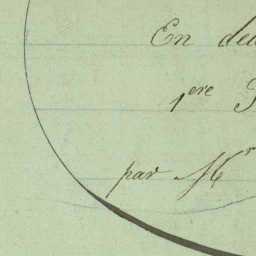 En de
1ere
par Mr